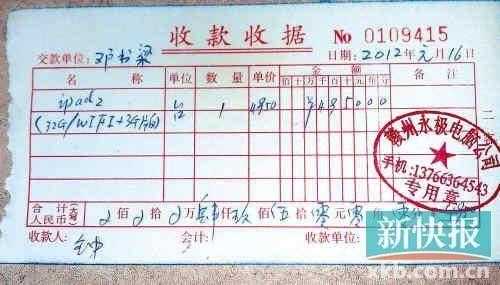 收款收据 No 0109415
交款单位：邓书梁 日期：2012年元月16日
名称 单位 数量 单价 金额 备注
佰 十 万 千 百 十 元 角 分
ipad2 台 1 4950 ¥495000
(32G/WIFI+3G版)
合计 人民币(大写) 佰 拾 万 肆仟玖佰伍拾零元零角
收款人： 会计： 收款单位：
赣州永极电脑公司
手机:13766364543
专用章
新快报
xkb.com.cn